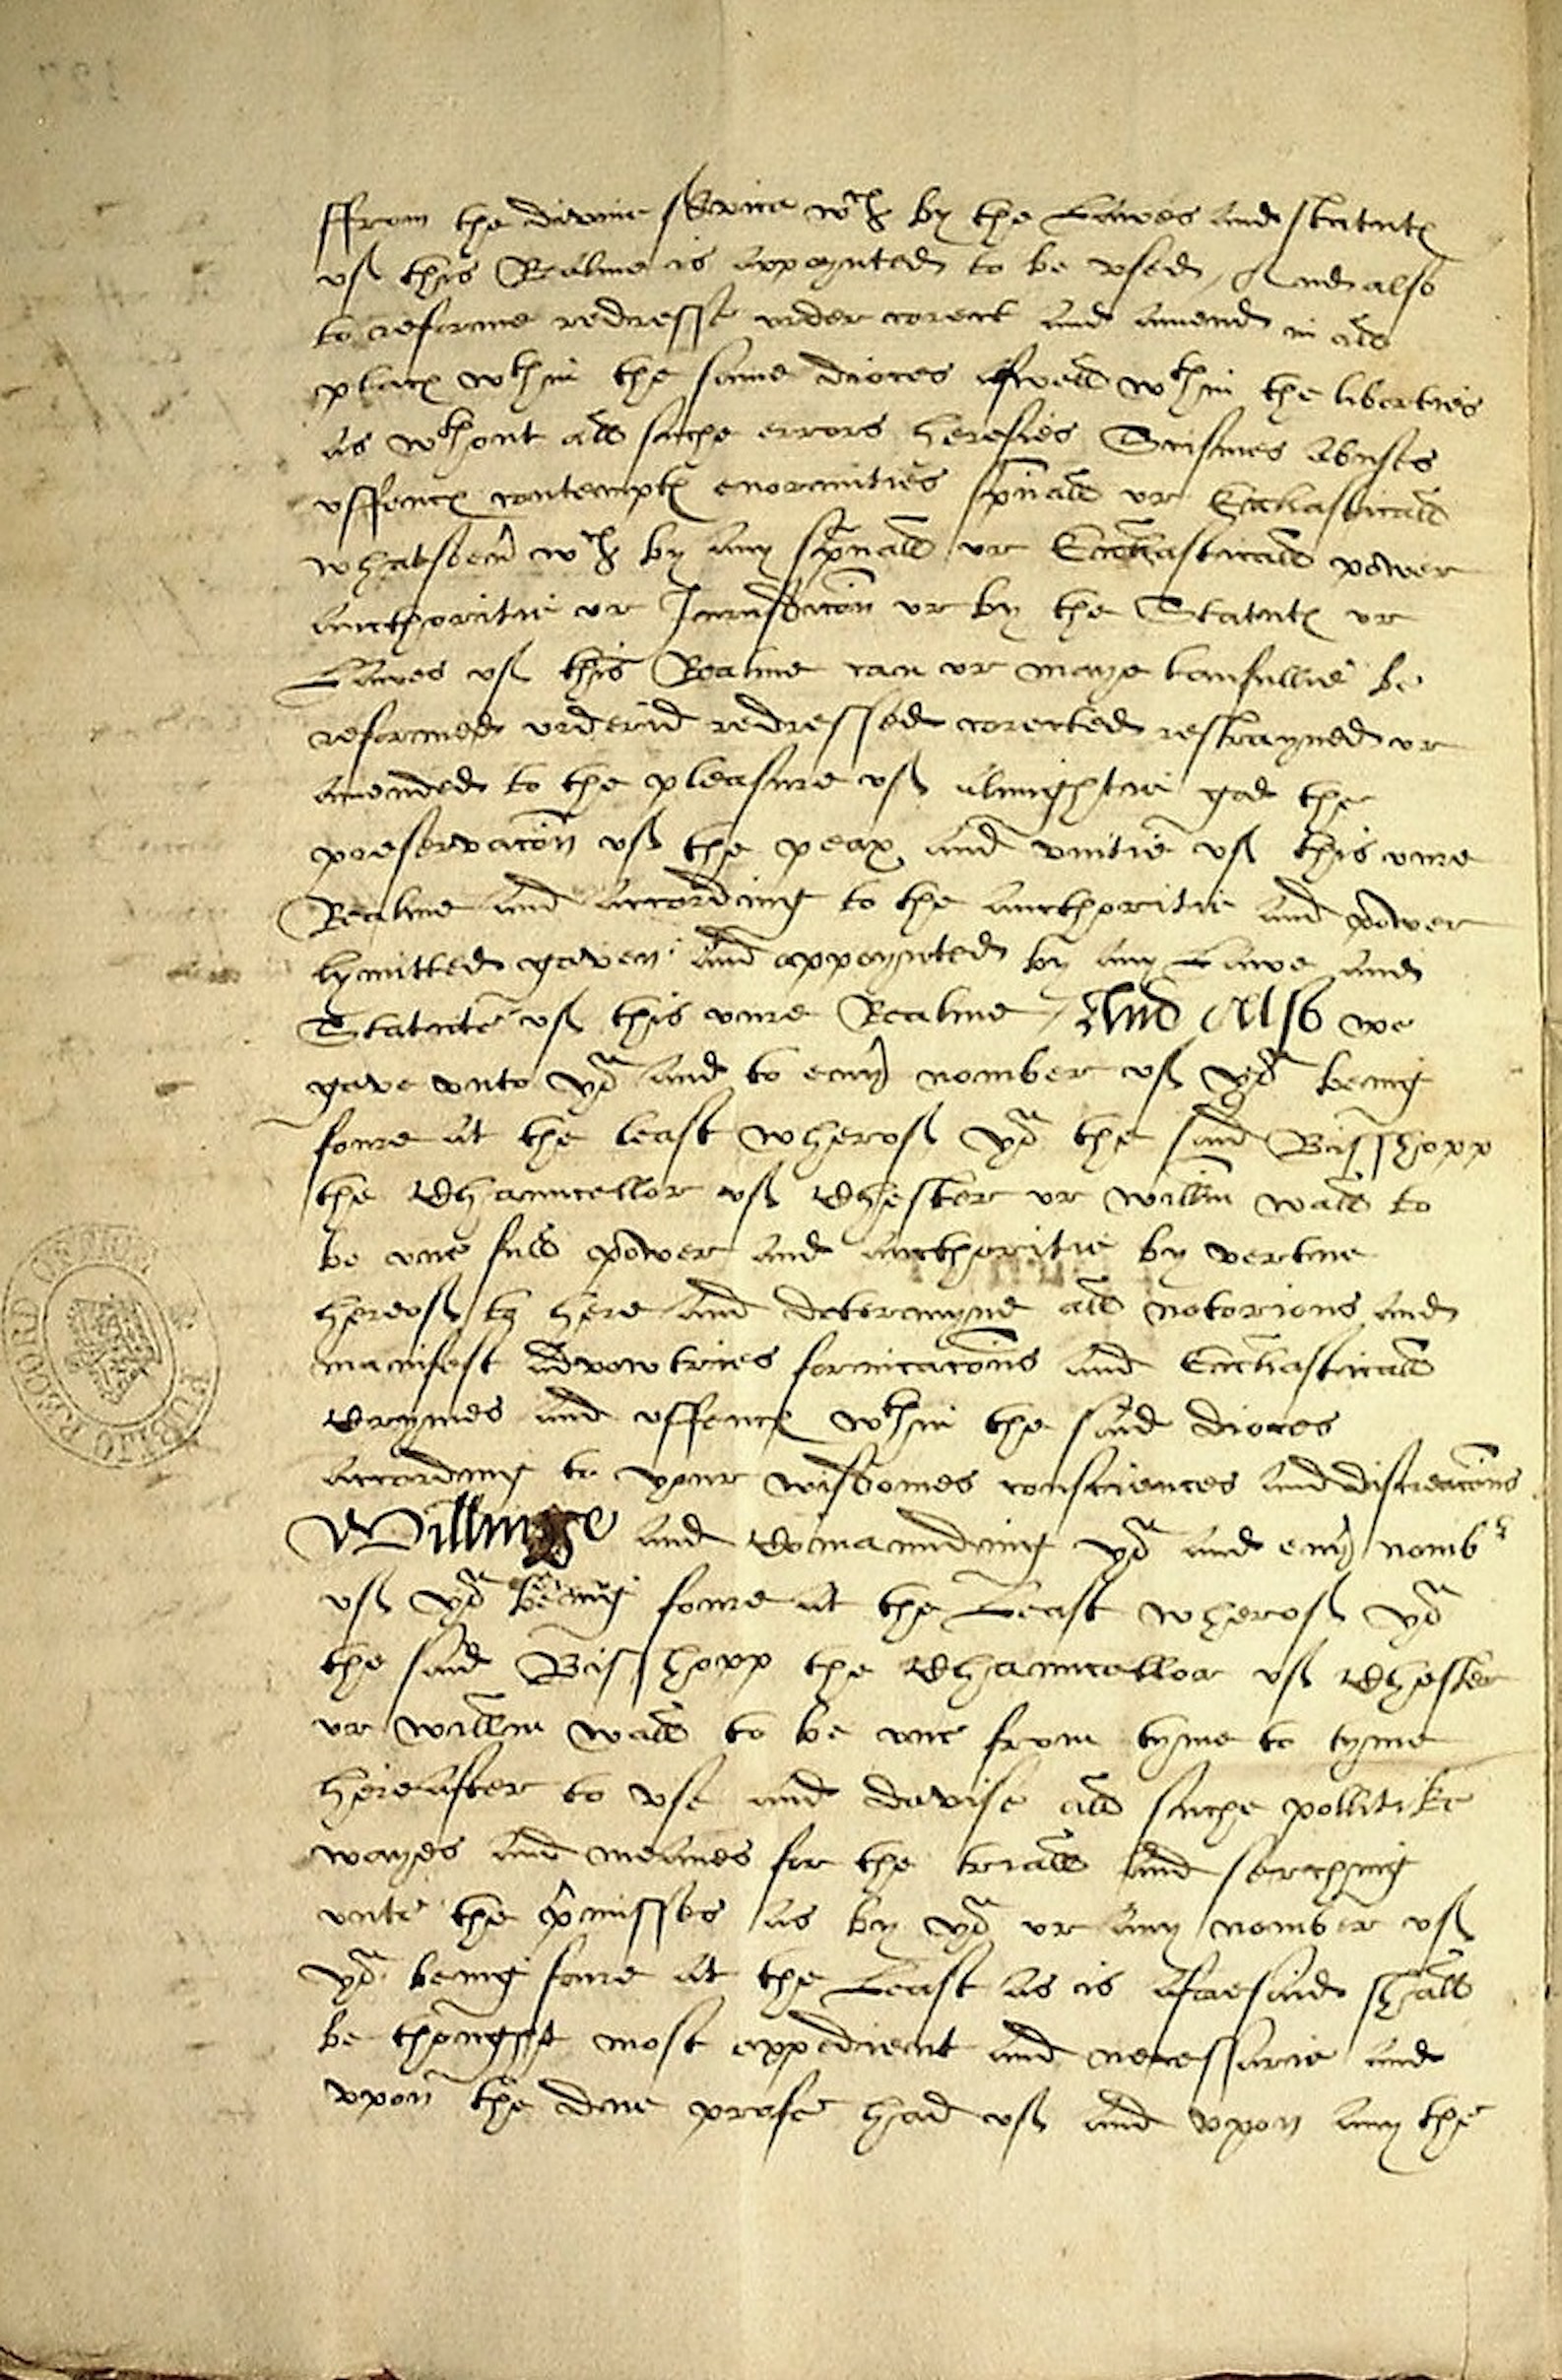 ffrom the divine service wch by the Lawes and statutꝭ
off this Realme is appoynted to be vsed / And also
to reforme redresse order corect and amend in all
placꝭ wthin the same dioces aswell wthin the liberties
as wthout all suche errors heresies Scismes abuses
offencꝭ contemptꝭ enormities sp̄uall or Eccl̄iasticall
whatsoeu̾ wch by any sp̄uall or Eccl̄iasticall power
aucthoritie or Iurisdicc̄on or by the Statutꝭ or
Lawes off this Realme can or maye laufullie be
reformed ordered redressed corected restrayned or
amended to the pleasure off almightie god the
preservac̄on off the peax and vnitie off this oure
Realme and according to the aucthoritie and power
lymitted geven and appoynted by any Lawe and
Statute off this oure Realme / And Also we
geve vnto yoᵘ and to eu̾y nomber off yoᵘ being
foure at the least wheroff yoᵘ the said Bisshopp
the Chauncellor off Chester or Willm̄ Wall to
be one full power and aucthoritie by vertue
heroff to here and determyne all notorious and
manifest Advowtries fornicac̄ons and Eccl̄iasticall
Crymes and offencꝭ wthin the said dioces
according to your wisdomes consciences and discreac̄ons
Willinge and Comaunding yoᵘ and eu̾y nombʳ
off yoᵘ being foure at the Least wheroff yoᵘ
the said Bisshopp the Chauncellor off Chester
or Willm̄ Wall to be one from tyme to tyme
hereafter to vse and devise all suche pollitike
wayes and meanes for the triall and serching
oute the p̄misses as by yoᵘ or any nomber off
yoᵘ being foure at the Least as is aforesaid shall
be thought most expedient and necessarie and
vpon the due profe had off and vpon any the
PUBLIC RECORD OFFICE